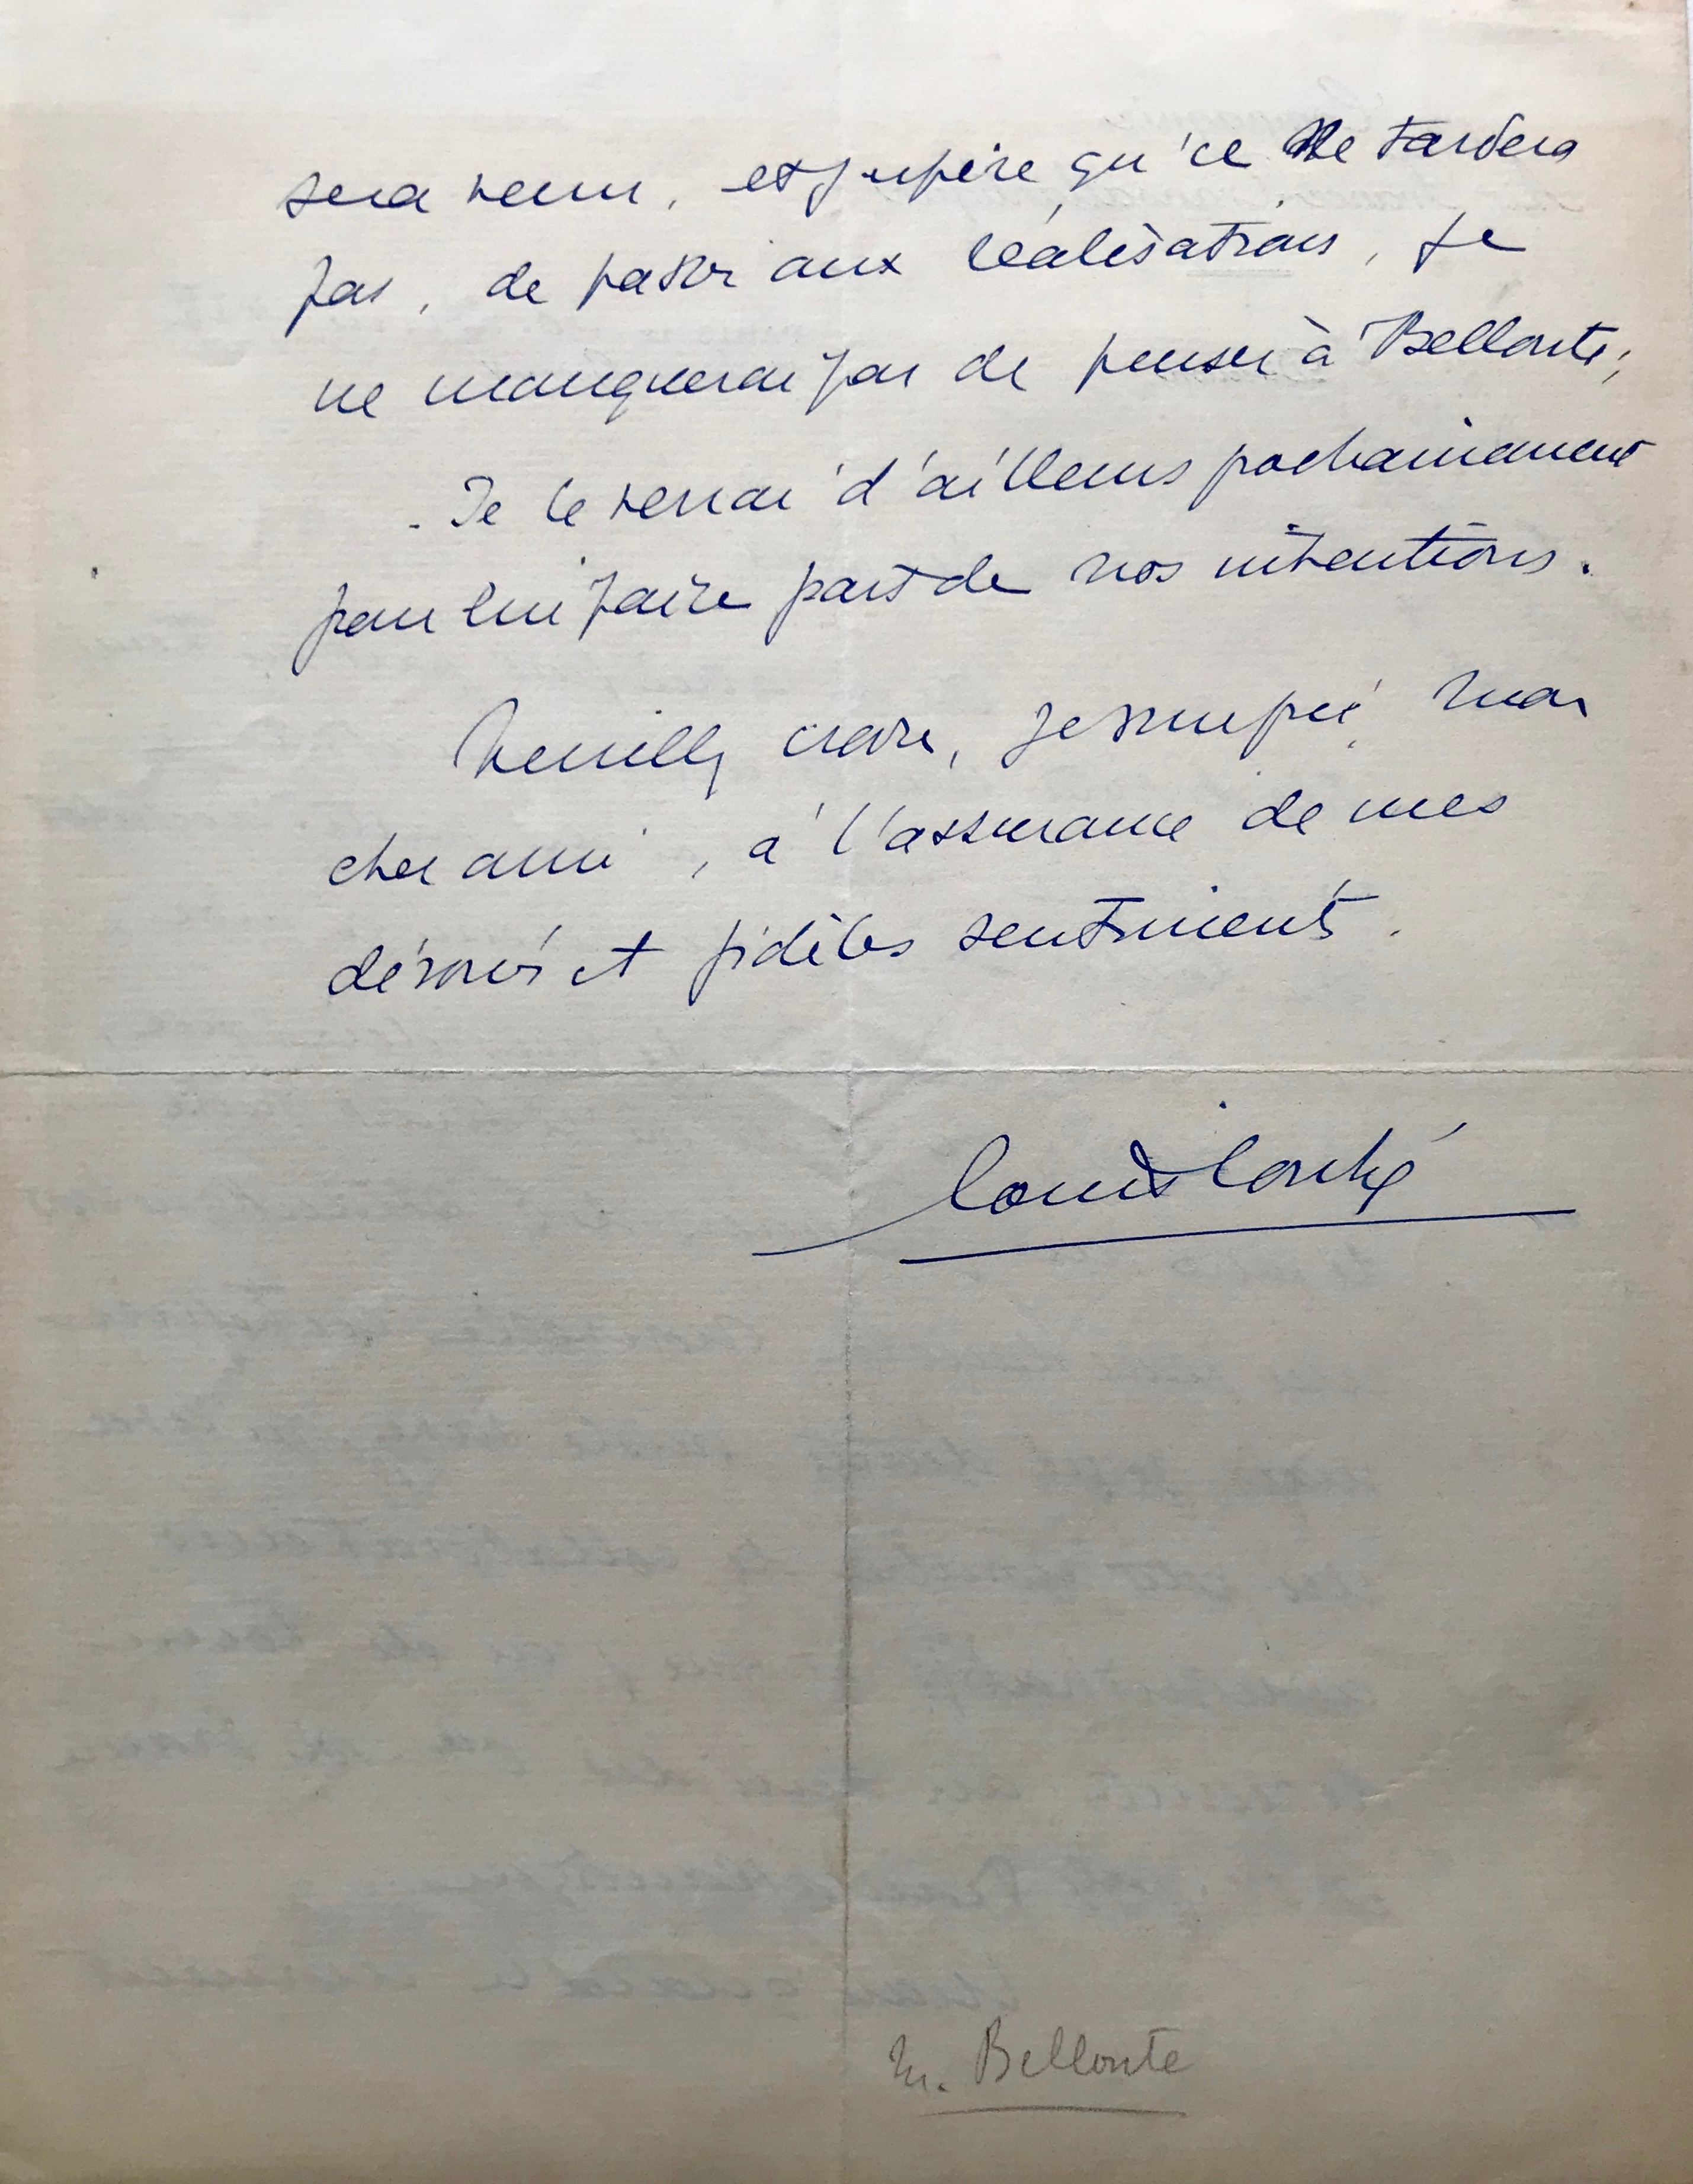 sera venu, et j'espère qu'ce ne tardera
pas, de passer aux réalisations, je
ne manquerai pas de penser à Bellonte;
- Je le verrai d'ailleurs prochainement
pour lui faire part de nos intentions.
Veuillez croire, je vous prie, mon
cher ami, à l'assurance de mes
dévoués et fidèles sentiments.
Louis Couhé
M. Bellonte